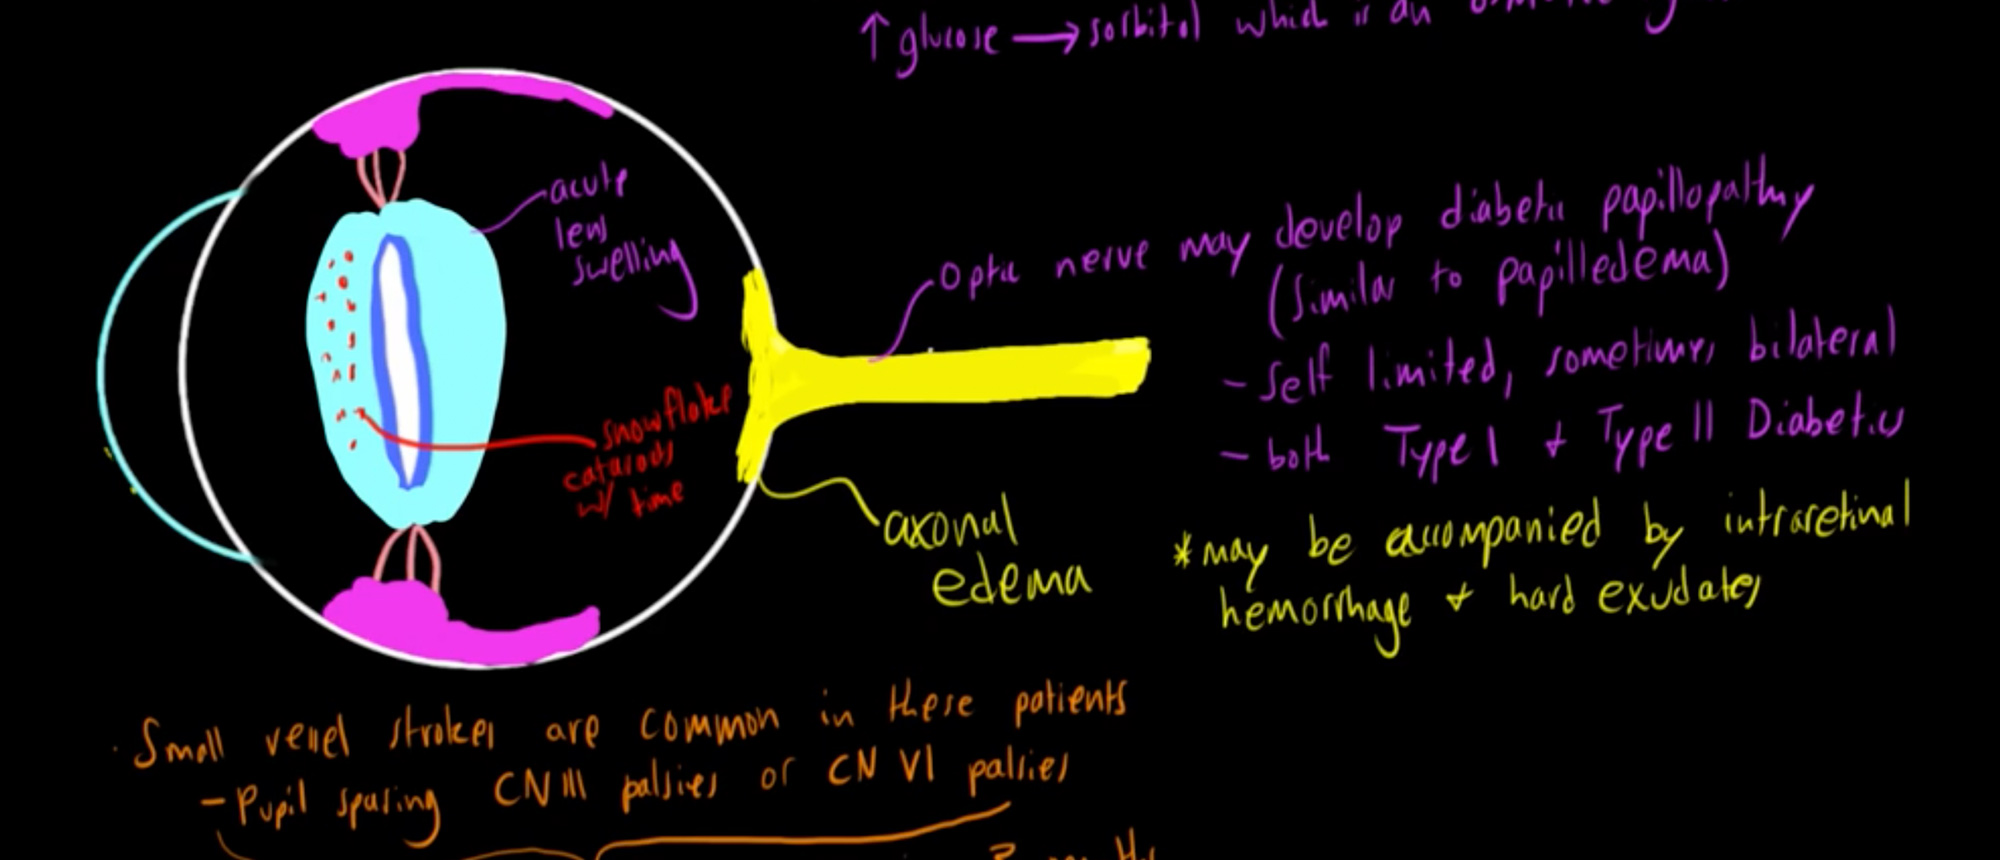 ↑ glucose → sorbitol which is an
acute
lens
swelling
Optic nerve may develop diabetic papillopathy
(similar to papilledema)
- Self limited, sometimes bilateral
- both Type I + Type II Diabetics
snowflake
cataracts
w/ time
axonal
edema
*may be accompanied by intraretinal
hemorrhage + hard exudates
· Small vessel strokes are common in these patients
- Pupil sparing CN III palsies or CN VI palsies